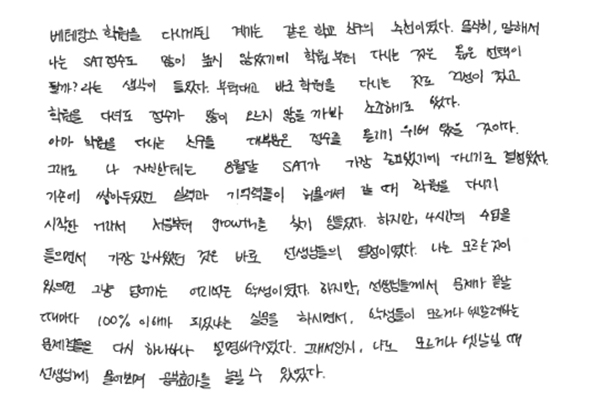 베테랑스 학원을 다니게된 계기는 같은 학교 친구의 추천이였다. 솔직히, 말해서
나는 SAT 점수도 많이 높지 않았기에 학원부터 다니는 것은 옳은 선택이
될까? 라는 생각이 들었다. 부탁대고 바로 학원을 다니는 것도 걱정이 됐고
학원을 다녀도 점수가 많이 오르지 않을까봐 초조하기도 했다.
아마 학원을 다니는 친구들 대부분은 점수를 올리기 위해 왔을 것이다.
그래도 나 자신한테는 8월달 SAT가 가장 중요했기에 다니기로 결정했다.
기존에 쌓아두었던 실력과 기억력들이 허물어져 갈 때 학원을 다니기
시작한 거라서 처음부터 growth를 찾기 힘들었다. 하지만, 4시간의 수업을
들으면서 가장 감사했던 것은 바로 선생님들의 열정이였다. 나는 모르는것이
있으면 그냥 넘어가는 어리석은 학생이였다. 하지만, 선생님들께서 문제가 끝날
때마다 100% 이해가 되었냐는 질문을 하시면서, 학생들이 모르거나 헷갈려하는
문제점들을 다시 하나하나 설명해주셨다. 그래서인지, 나도 모르거나 헷갈릴 때
선생님께 물어보며 공부효과를 늘릴 수 있었다.